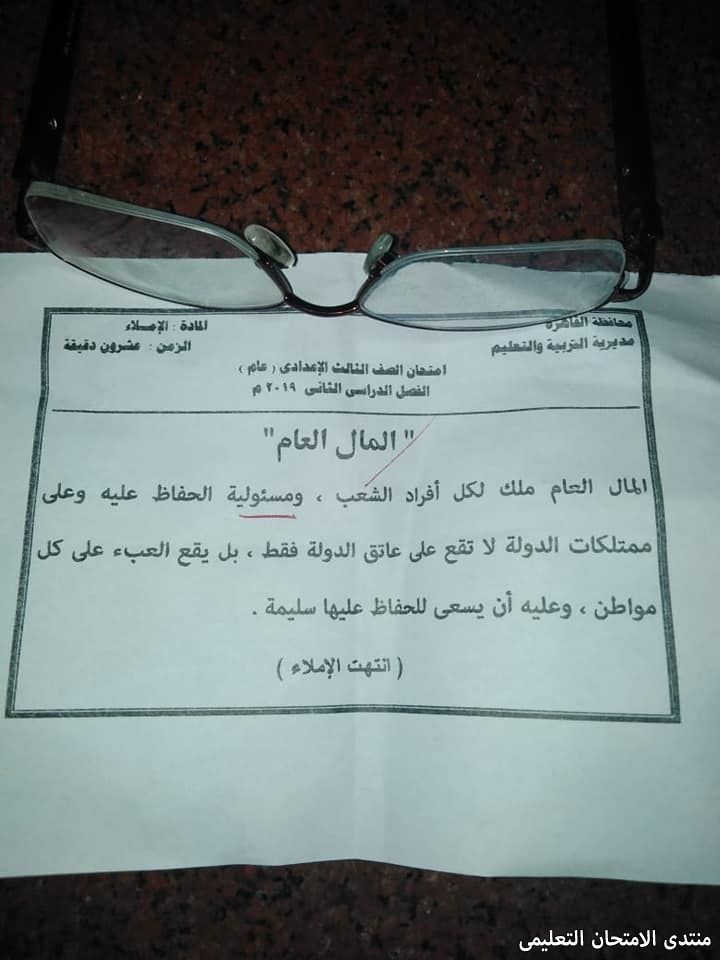 محافظة القاهرة
مديرية التربية والتعليم
المادة : الإملاء
الزمن : عشرون دقيقة
امتحان الصف الثالث الإعدادى ( عام )
الفصل الدراسى الثانى ٢٠١٩ م
" المال العام "
المال العام ملك لكل أفراد الشعب ، ومسئولية الحفاظ عليه وعلى
ممتلكات الدولة لا تقع على عاتق الدولة فقط ، بل يقع العبء على كل
مواطن ، وعليه أن يسعى للحفاظ عليها سليمة .
( انتهت الإملاء )
منتدى الامتحان التعليمى